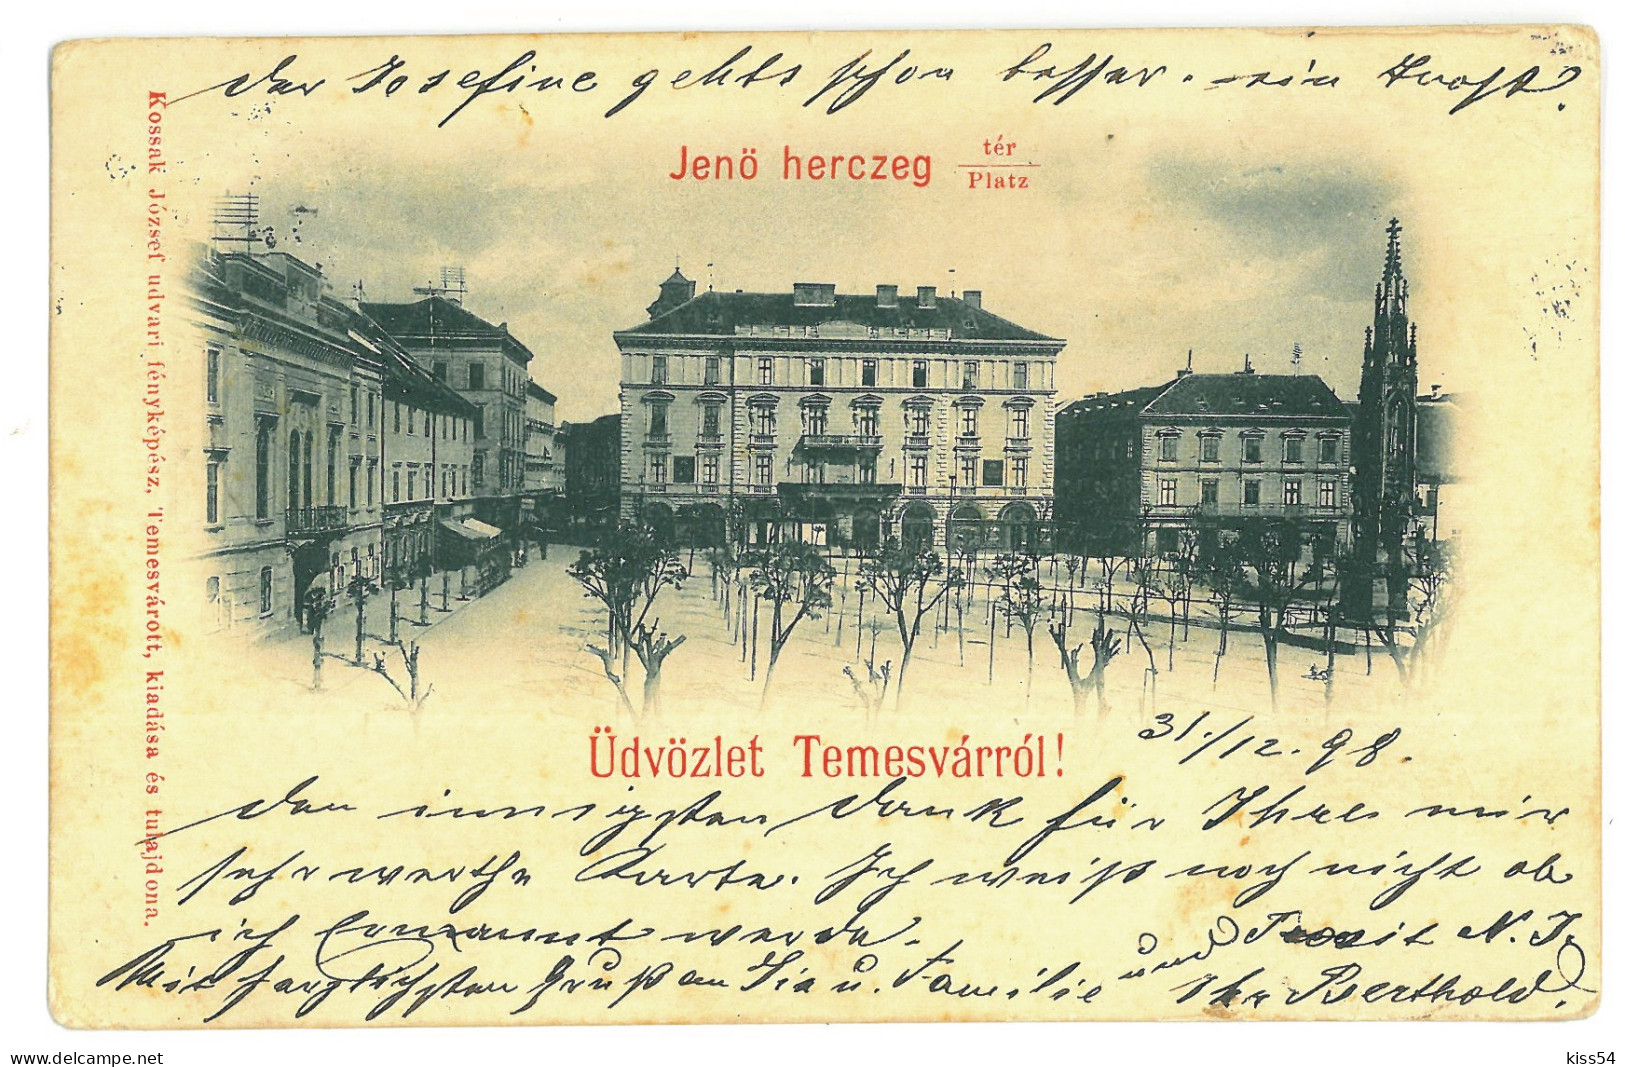 der Josefine gehts schon besser. ein Trost?
Jenö herczeg tér
Platz
Kossak József udvari fényképész, Temesvárott, kiadása és tulajdona.
Üdvözlet Temesvárról!
31./12. 98.
den innigsten Dank für Ihre mir
sehr werthe Karte. Ich weiß noch nicht ob
ich Ernannt werde.
und Prosit N. J.
Mit herzlichsten Gruß an Sie u. Familie Ihr Berthold.
delcampe.net
kiss54